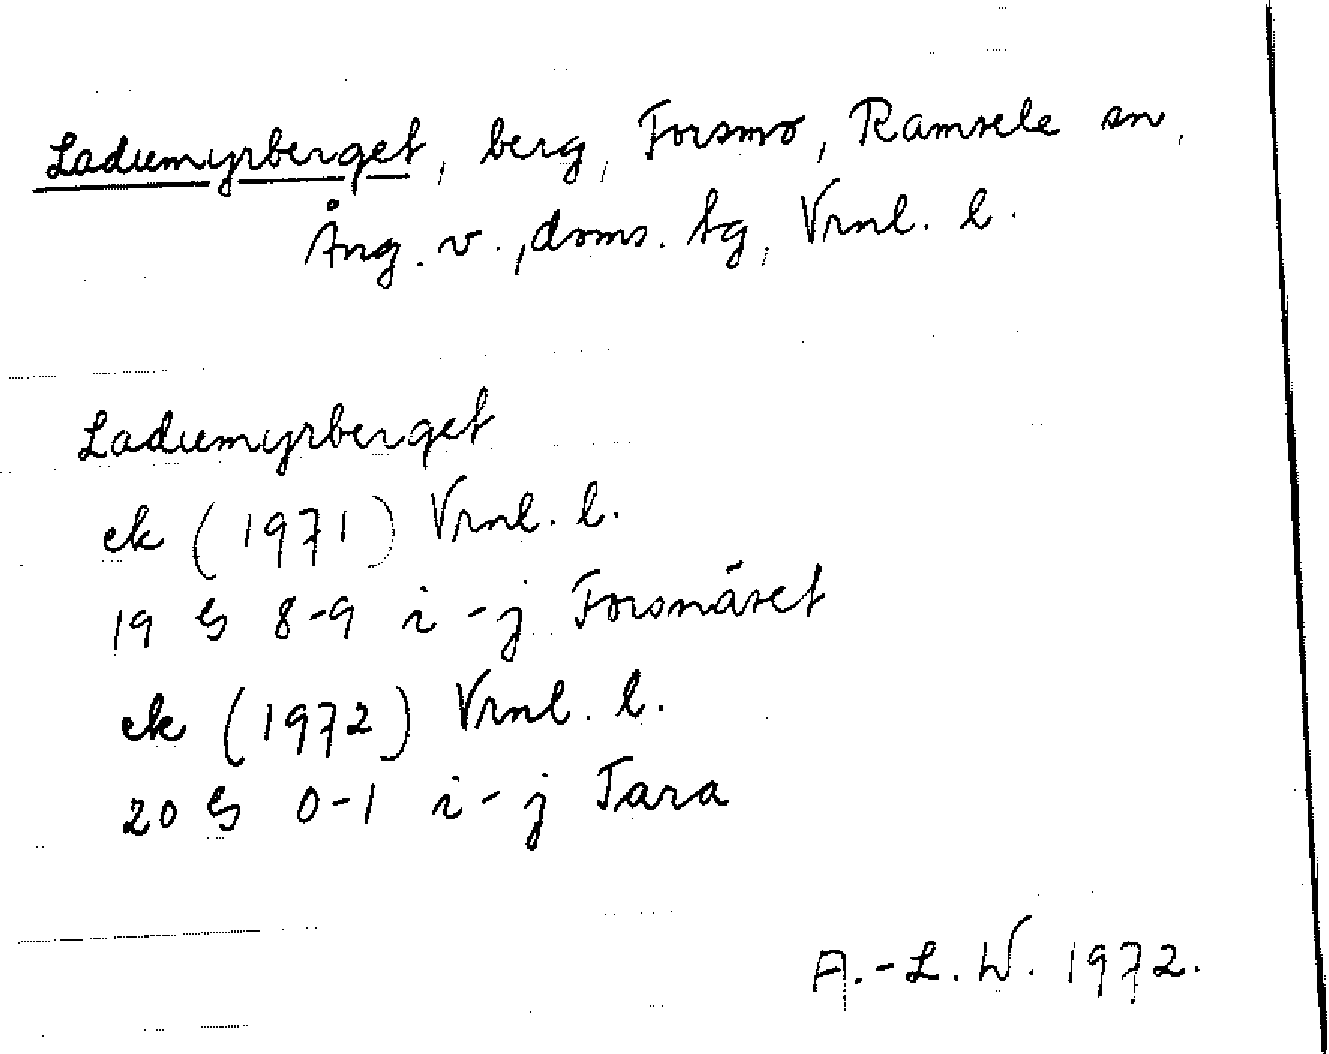 Ladumyrberget, berg, Forsmo, Ramsele sn,
Ång. v., doms. tg, Vrnl. l.
Ladumyrberget
ek (1971) Vrnl. l.
19 G 8-9 i-j Forsnäset
ek (1972) Vrnl. l.
20 G 0-1 i-j Tara
A.-L. W. 1972.